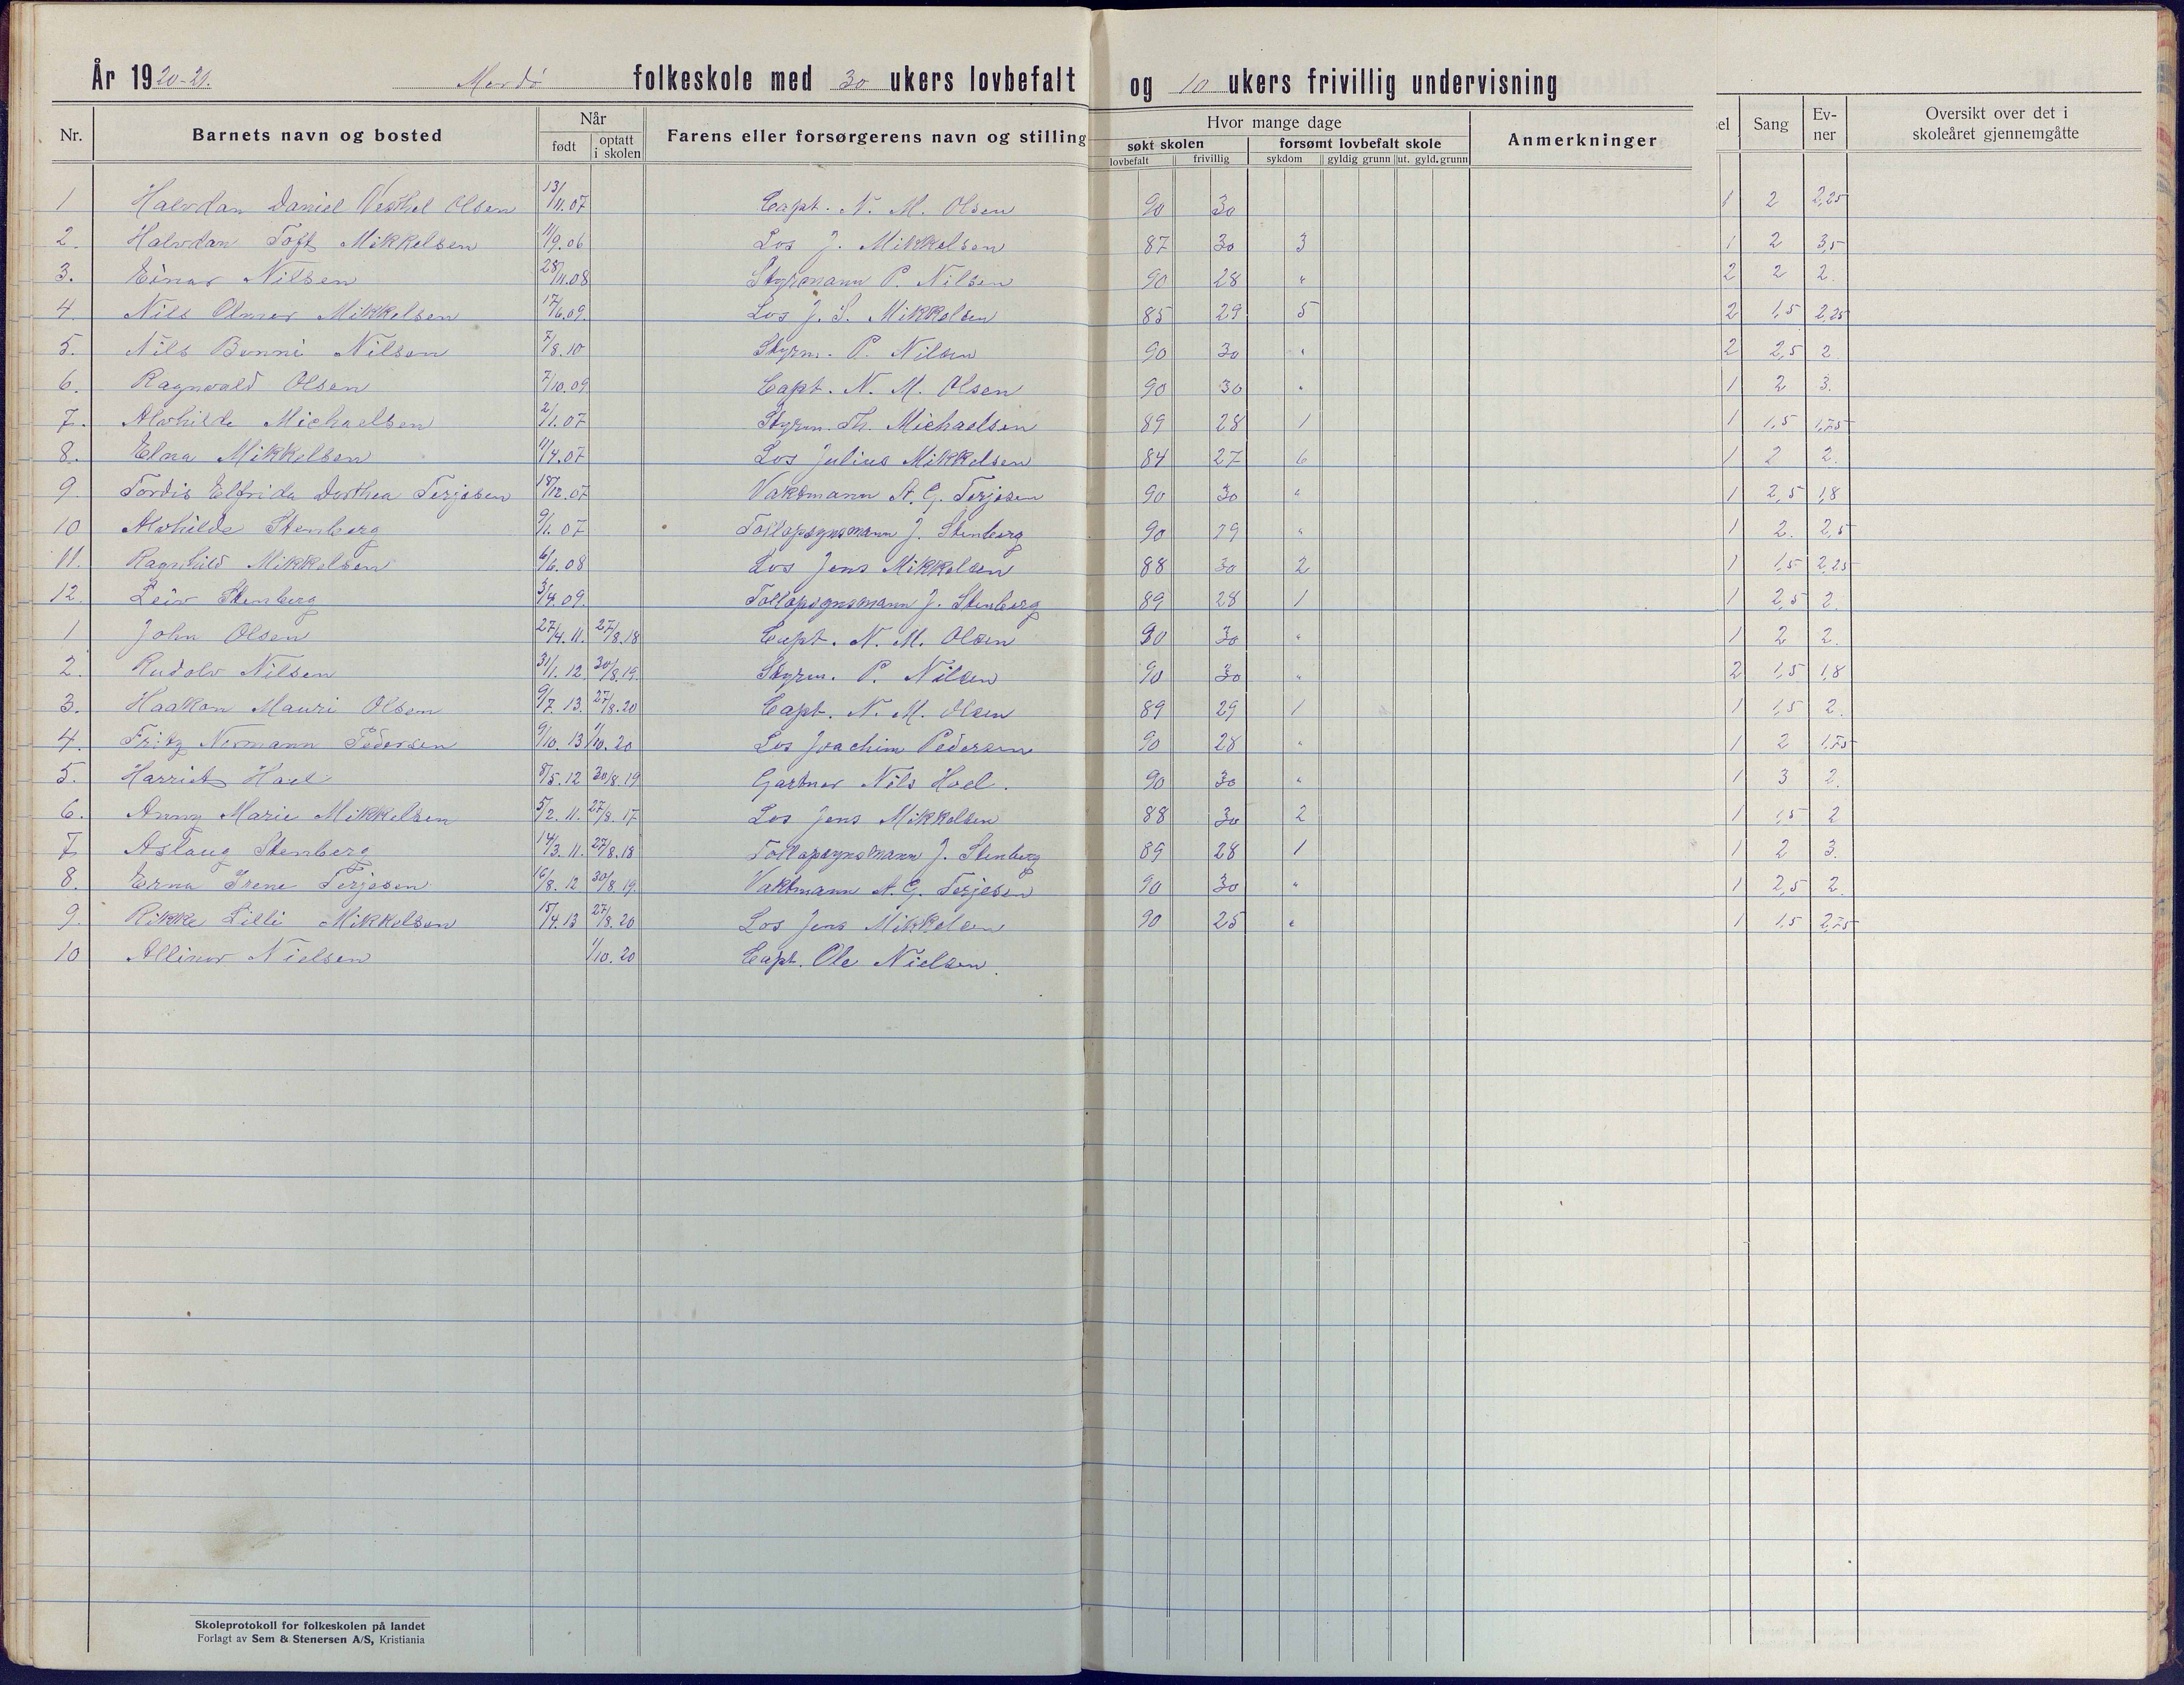 År 1920-21. Merdö folkeskole med 30 ukers lovbefalt og 10 ukers frivillig undervisning
Nr. Barnets navn og bosted Når født optatt i skolen Farens eller forsørgerens navn og stilling Hvor mange dage søkt skolen lovbefalt frivillig forsømt lovbefalt skole sykdom gyldig grunn ut. gyld. grunn Anmerkninger el Sang Evner Oversikt over det i skoleåret gjennemgåtte
1 Halvdan Daniel Olsen 13/11.07 Capt. N. M. Olsen 90 30 1 2 2,25
2. Halvdan Toft Mikkelsen 11/9.06 Los J. Mikkelsen 87 30 3 1 2 3,5
3. Einar Nilsen 28/11.08 Styrmann P. Nilsen 90 28 " 2 2 2.
4. Nils Olmer Mikkelsen 17/6.09. Los J. S. Mikkelsen 85 29 5 2 1,5 2,25
5. Nils Benni Nilsen 7/8.10 Styrm. P. Nilsen 90 30 " 2 2,5 2.
6. Ragnvald Olsen 7/10.09 Capt. N. M. Olsen 90 30 " 1 2 3.
7. Alvhilde Michaelsen 2/1.07 Styrm. Th. Michaelsen 89 28 1 1 1,5 1,75
8. Elna Mikkelsen 11/4.07 Los Julius Mikkelsen 84 27 6 1 2 2.
9. Tordis Elfrida Dorthea Terjesen 18/12.07 Vaktmann A. G. Terjesen 90 30 " 1 2,5 1,8
10 Alvhilde Stenberg 9/1.07 Tollopsynsmann J. Stenberg 90 29 " 1 2. 2,5
11. Ragnhild Mikkelsen 6/6.08 Los Jens Mikkelsen 88 30 2 1 1,5 2,25
12. Leiv Stenberg 3/4.09. Tollopsynsmann J. Stenberg 89 28 1 1 2,5 2.
1 John Olsen 27/4.11. 27/8.18 Capt. N. M. Olsen 90 30 " 1 2 2.
2. Rudolv Nilsen 31/1.12 30/8.19. Styrm. P. Nilsen 90 30 " 2 1,5 1,8
3. Haakon Mauri Olsen 9/7.13. 27/8.20 Capt. N. M. Olsen 89 29 1 1 1,5 2.
4. Fritz Normann Pedersen 9/10.13 1/10.20 Los Joachim Pedersen 90 28 " 1 2 1,75
5. Harriet Hoel 8/5.12 30/8.19 Gartner Nils Hoel. 90 30 " 1 3 2.
6. Anny Marie Mikkelsen 5/2.11. 27/8.17 Los Jens Mikkelsen 88 30 2 1 1,5 2
7 Aslaug Stenberg 14/3.11. 27/8.18 Tollopsynsmann J. Stenberg 89 28 1 1 2 3.
8. Erna Irene Terjesen 16/8.12 30/8.19. Vaktmann A. G. Terjesen 90 30 " 1 2,5 2.
9. Rikke Lilli Mikkelsen 15/4.13 27/8.20 Los Jens Mikkelsen 90 25 " 1 1,5 2,75
10 Allinor Nielsen 1/10.20 Capt. Ole Nielsen.
Skoleprotokoll for folkeskolen på landet
Forlagt av Sem & Stenersen A/S, Kristiania